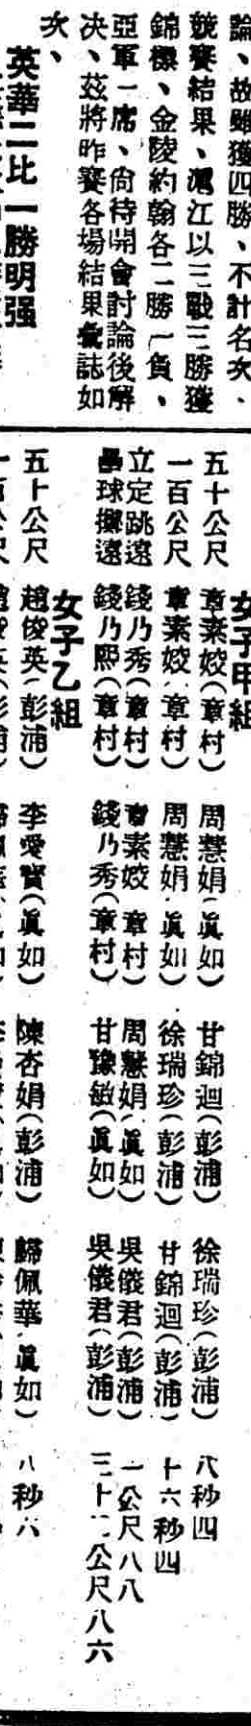 論、故雖獲四勝、不計名次、
競賽結果、滬江以三戰三勝獲
錦標、金陵約翰各二勝一負、
亞軍一席、尚待開會討論後解
决、茲將昨賽各場結果彙誌如
次、
英華二比一勝明强
女子甲組
五十公尺 章素姣（章村） 周慧娟（眞如） 甘錦迴（彭浦） 徐瑞珍（彭浦） 八秒四
一百公尺 章素姣 章村） 周慧娟 眞如） 徐瑞珍（彭浦） 甘錦迴（彭浦） 十六秒四
立定跳遠 錢乃秀（章村） 章素姣 章村） 周慧娟（眞如） 吳儀君（彭浦） 一公尺八八
壘球擲遠 錢乃熙（章村） 錢乃秀（章村） 甘豫敏（眞如） 吳儀君（彭浦） 三十二公尺八六
女子乙組
五十公尺 趙俊英（彭浦） 李愛寶（眞如） 陳杏娟（彭浦） 歸佩華 眞如） 八秒六